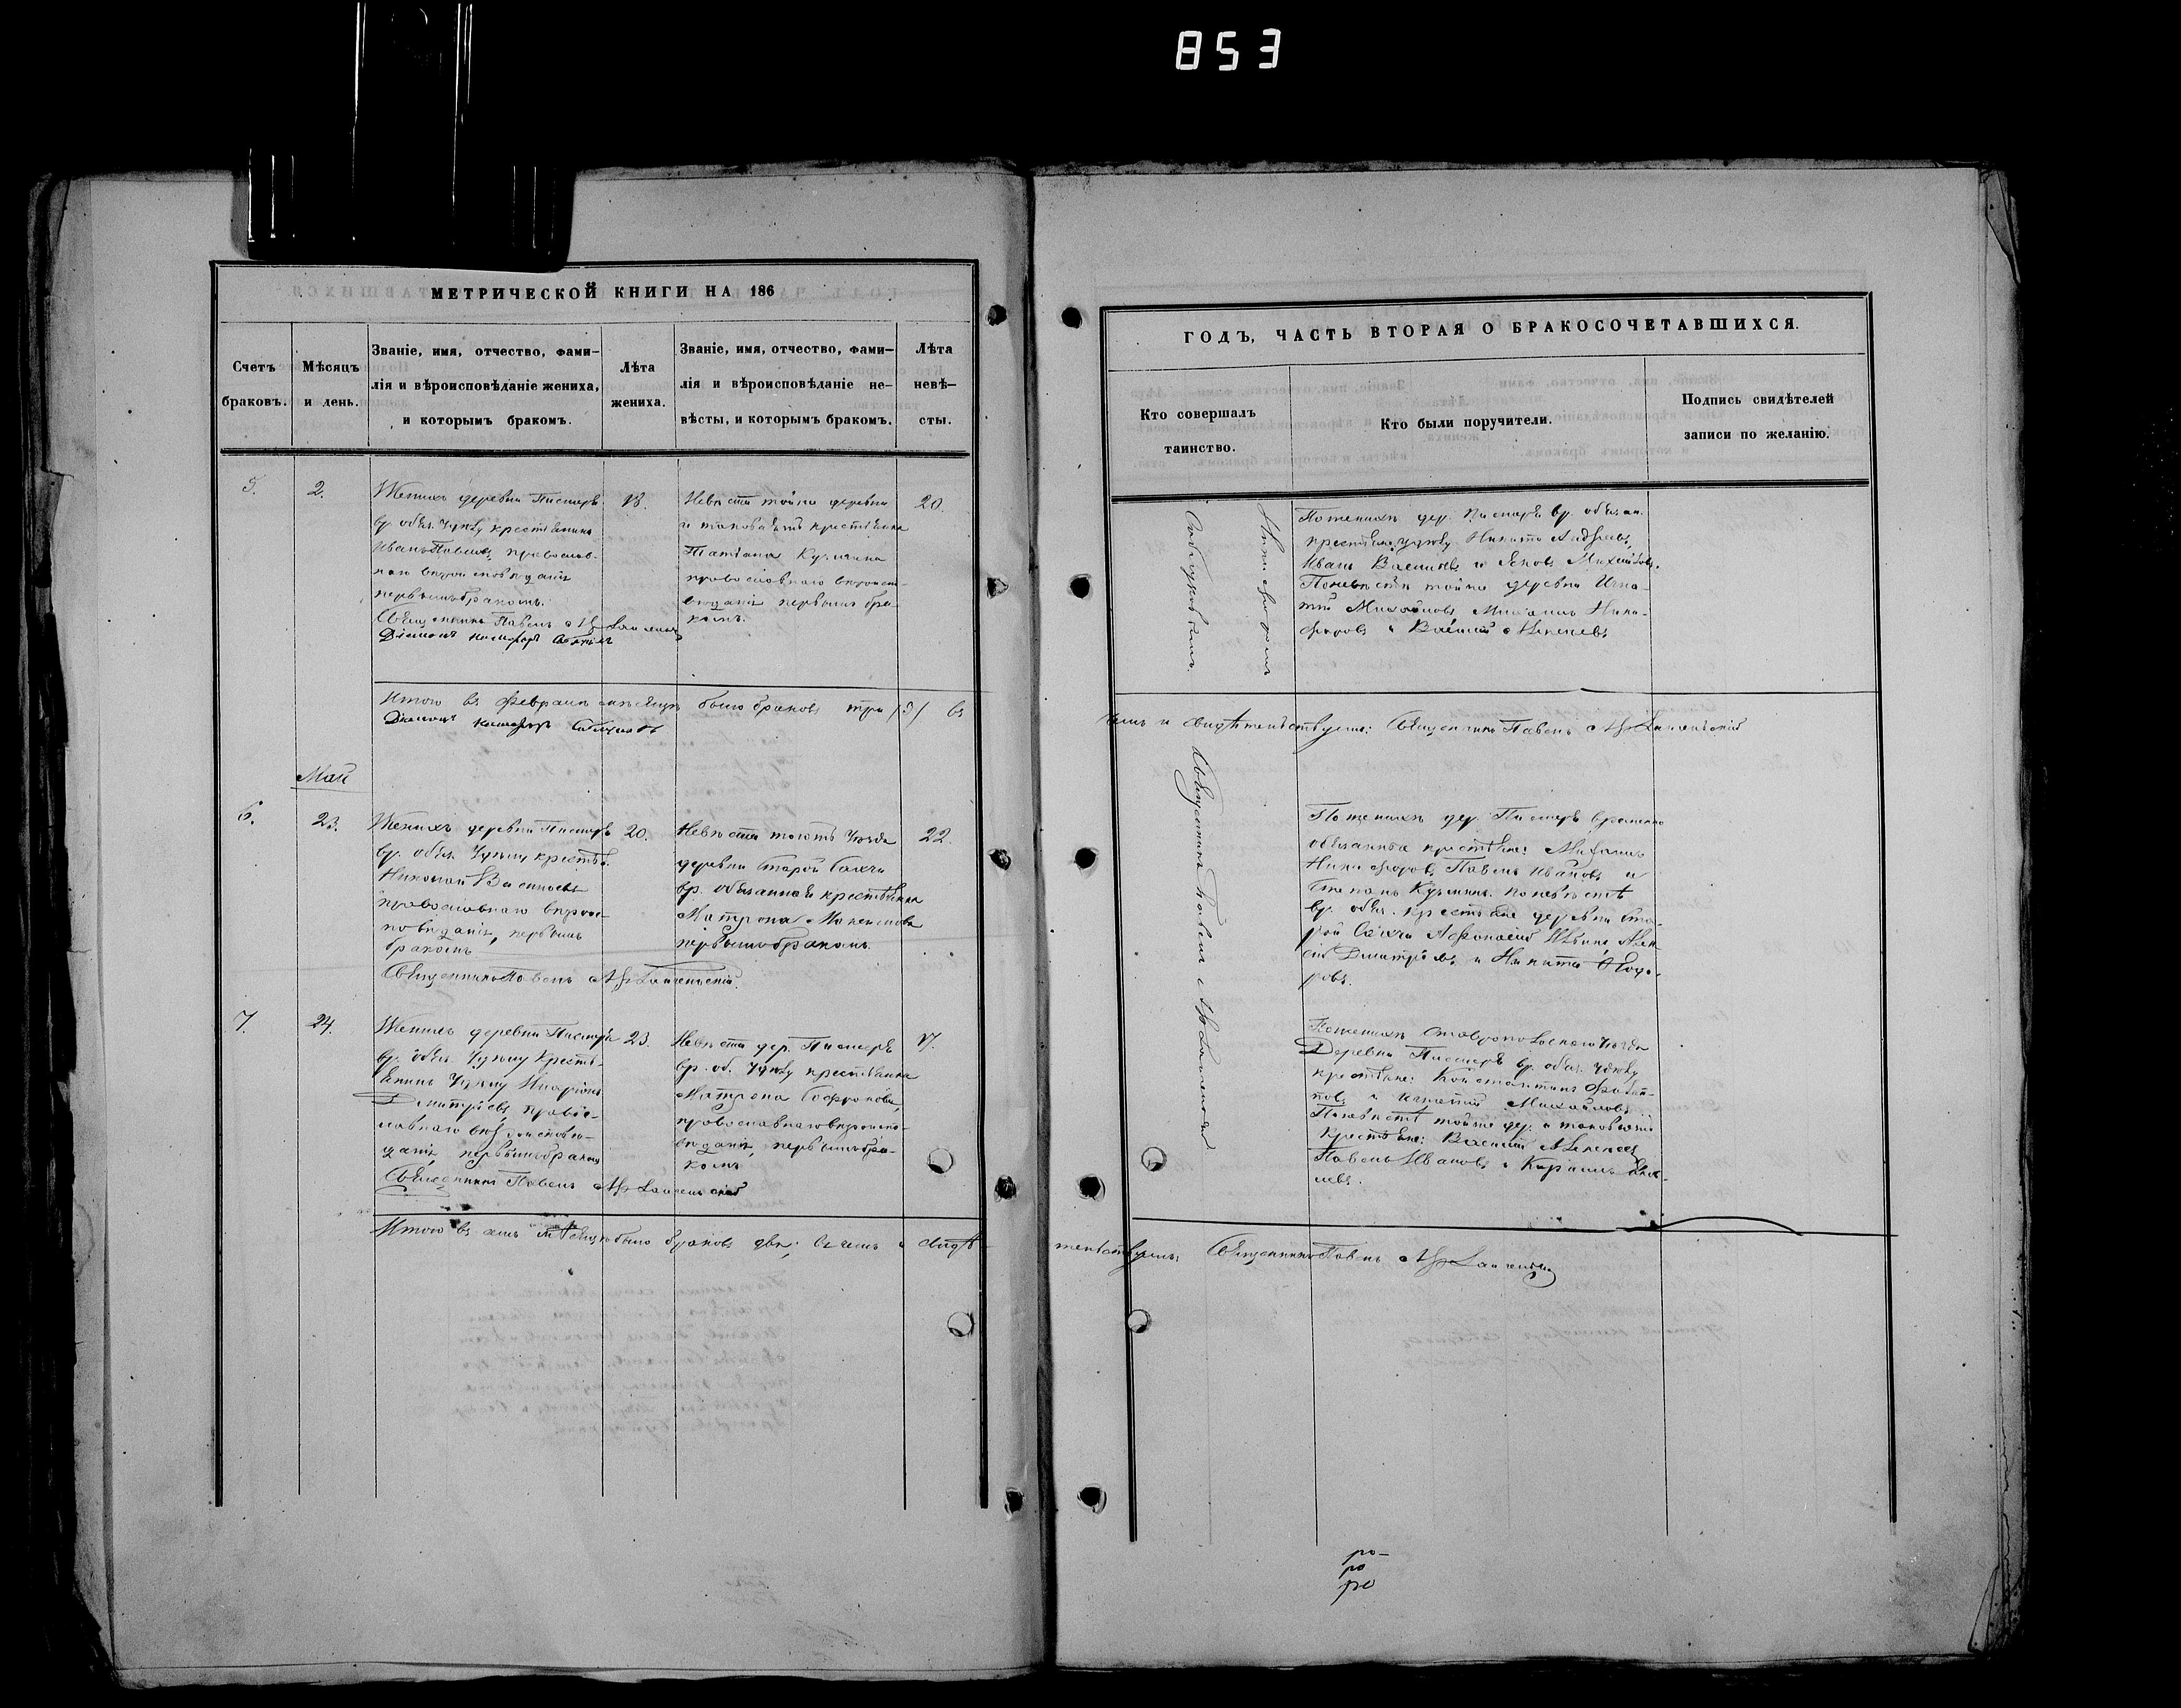 853
МЕТРИЧЕСКОЙ КНИГИ НА 186
Счетъ браковъ.
Мѣсяцъ и день.
Званіе, имя, отчество, фами-
лія и вѣроисповѣданіе жениха,
и которымъ бракомъ.
Лѣта
жениха.
Званіе, имя, отчество, фами-
лія и вѣроисповѣданіе не-
вѣсты, и которымъ бракомъ.
Лѣта
невѣ-
сты.
5.
2.
Женихъ деревни Писмеръ
вр. обяз. крестьянинъ
Иванъ Павловъ, православ-
наго вѣроисповѣданія
первымъ бракомъ.
Священникъ Павелъ
18.
Невѣста тойже деревни
и таковаяжъ крестьянка
Татіана Кузмина
православнаго вѣроиспо-
вѣданія первымъ бра-
комъ.
20.
Итого въ Февралѣ мѣсяцѣ было браковъ три /3/ въ
Май
6.
23.
Женихъ деревни Писмеръ
вр. обяз. крестьян.
Николай Васильевъ
православнаго вѣроис-
повѣданія, первымъ
бракомъ
Священникъ Павелъ
20.
Невѣста тогожъ уѣзда
деревни Старой
вр. обязанная крестьянка
Матрона
первымъ бракомъ.
22.
7.
24.
Женихъ деревни Писмеръ
вр. обяз. кресть-
янинъ Иларіонъ
Дмитріевъ, правос-
лавнаго вѣроисповѣ-
данія, первымъ бракомъ
Священникъ Павелъ
23.
Невѣста дер. Писмеръ
вр. об. крестьянка
Матрона Софронова,
православнаго вѣроиспо-
вѣданія, первымъ бра-
комъ
17.
Итого въ маѣ мѣсяцѣ было браковъ два; въ чемъ и свидѣ-
ГОДЪ, ЧАСТЬ ВТОРАЯ О БРАКОСОЧЕТАВШИХСЯ.
Кто совершалъ
таинство.
Кто были поручители.
Подпись свидѣтелей
записи по желанію.
По женихѣ дер. Писмеръ вр. обязан.
крестьяне Никита Андреевъ,
Иванъ Васильевъ и Яковъ Михайловъ.
По невѣстѣ тойже деревни Игна-
тій Михайловъ, Михаилъ Ники-
форовъ и Василій Алексеевъ
чемъ и свидѣтельствуемъ: Священникъ Павелъ
Священникъ Павелъ
По женихѣ дер. Писмеръ временно
обязанные крестьяне: Михаилъ
Никифоровъ, Павелъ Ивановъ и
Степанъ Кузминъ. По невѣстѣ
вр. обяз. крестьяне деревни Ста-
рой Афонасій Ильинъ, Алек-
сій Дмитріевъ и Никита Федо-
ровъ.
По женихѣ Ставропольскаго Уѣзда
Деревни Писмеръ вр. обяз.
крестьяне: Константинъ
и Игнатій Михайловъ
По невѣстѣ тойже дер. и таковыежъ
Крестьяне: Василій Алексеевъ
Павелъ Ивановъ и
тельствуемъ: Священникъ Павелъ
ро-
ро
ро